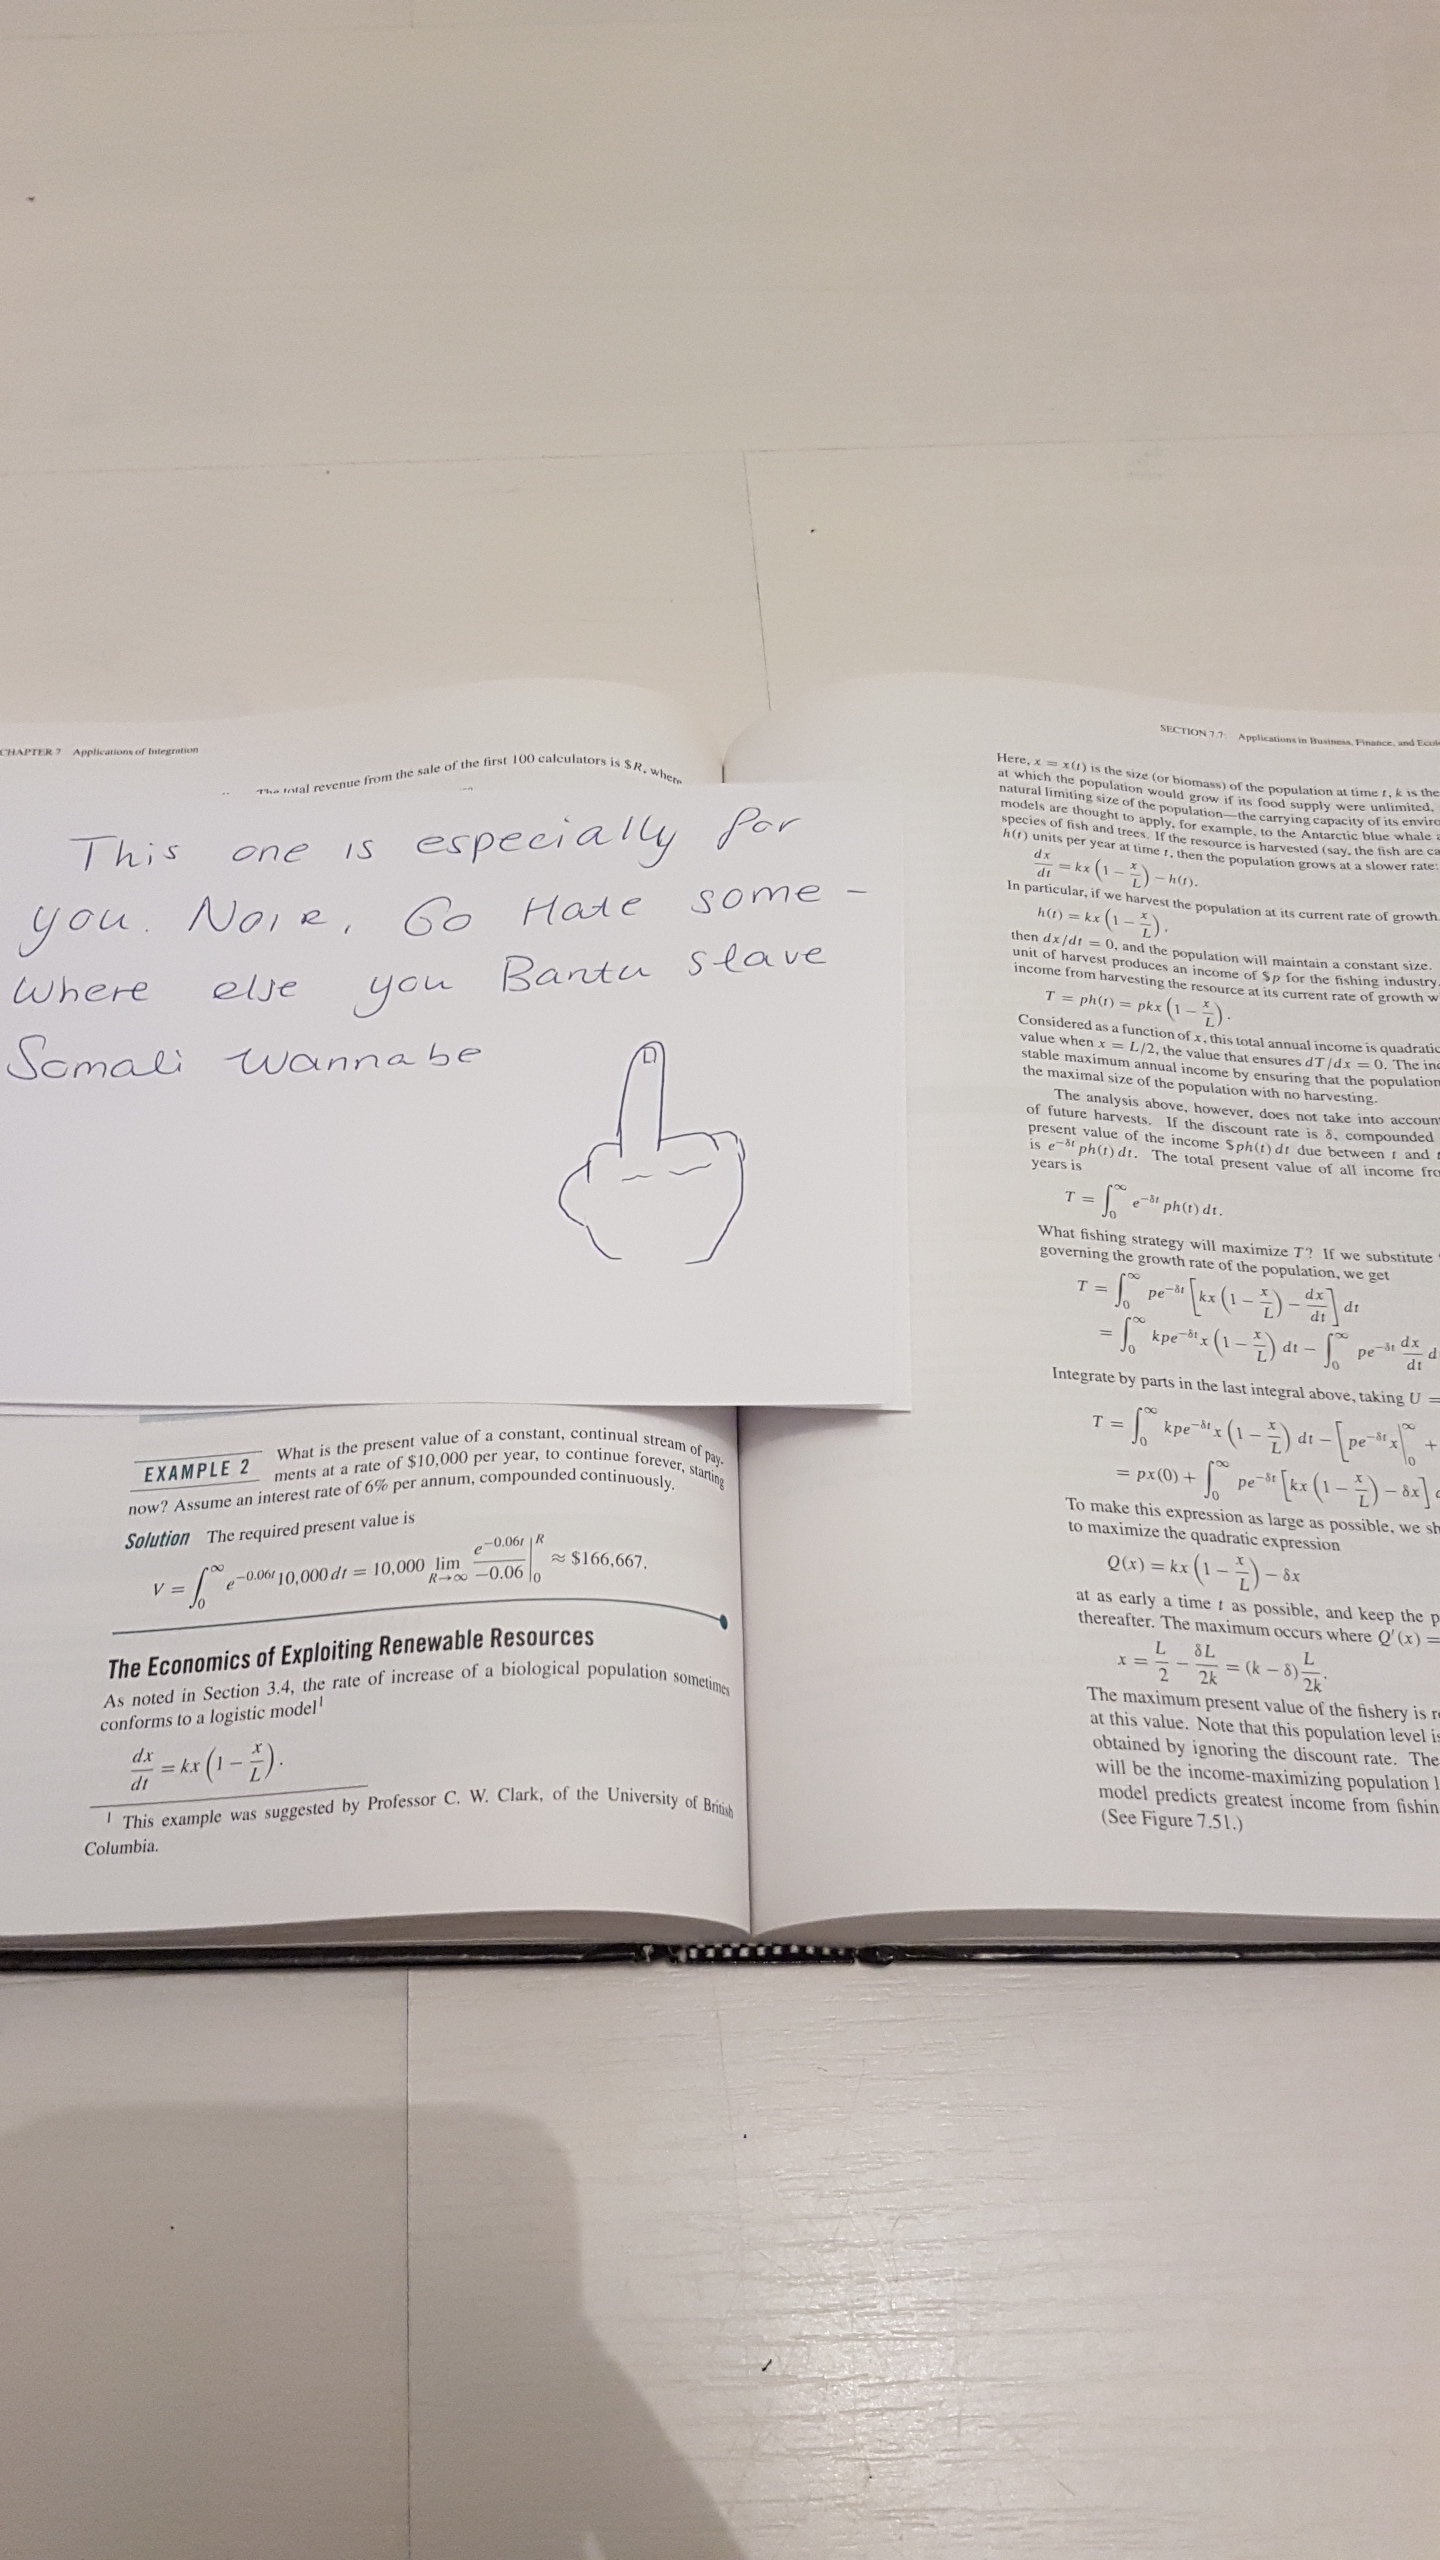 CHAPTER 7 Applications of Integration
The total revenue from the sale of the first 100 calculators is $R, where
This one is especially for
you. Noir, Go Hate some-
where else you Bantu slave
Somali wannabe
EXAMPLE 2 What is the present value of a constant, continual stream of pay-
ments at a rate of $10,000 per year, to continue forever, starting
now? Assume an interest rate of 6% per annum, compounded continuously.
Solution The required present value is
V = ∫₀^∞ e^{-0.06t} 10,000 dt = 10,000 lim_{R→∞} e^{-0.06t}/-0.06 |₀^R ≈ $166,667.
The Economics of Exploiting Renewable Resources
As noted in Section 3.4, the rate of increase of a biological population sometimes
conforms to a logistic model¹
dx/dt = kx (1 − x/L).
¹ This example was suggested by Professor C. W. Clark, of the University of British
Columbia.
SECTION 7.7: Applications in Business, Finance, and
Here, x = x(t) is the size (or biomass) of the population at time t, k is the
at which the population would grow if its food supply were unlimited,
natural limiting size of the population—the carrying capacity of its
models are thought to apply, for example, to the Antarctic blue whale
species of fish and trees. If the resource is harvested (say, the fish are
h(t) units per year at time t, then the population grows at a slower rate:
dx/dt = kx (1 − x/L) − h(t).
In particular, if we harvest the population at its current rate of growth
h(t) = kx (1 − x/L),
then dx/dt = 0, and the population will maintain a constant size.
unit of harvest produces an income of $p for the fishing industry.
income from harvesting the resource at its current rate of growth
T = ph(t) = pkx (1 − x/L).
Considered as a function of x, this total annual income is
value when x = L/2, the value that ensures dT/dx = 0. The
stable maximum annual income by ensuring that the population
the maximal size of the population with no harvesting.
The analysis above, however, does not take into
of future harvests. If the discount rate is δ, compounded
present value of the income $ph(t) dt due between t and
is e^{-δt} ph(t) dt. The total present value of all income
years is
T = ∫₀^∞ e^{-δt} ph(t) dt.
What fishing strategy will maximize T? If we substitute
governing the growth rate of the population, we get
T = ∫₀^∞ pe^{-δt} [kx (1 − x/L) − dx/dt] dt
= ∫₀^∞ kpe^{-δt} x (1 − x/L) dt − ∫₀^∞ pe^{-δt} dx/dt d
Integrate by parts in the last integral above, taking U =
T = ∫₀^∞ kpe^{-δt} x (1 − x/L) dt − [pe^{-δt} x |₀^∞ +
= px(0) + ∫₀^∞ pe^{-δt} [kx (1 − x/L) − δx]
To make this expression as large as possible, we
to maximize the quadratic expression
Q(x) = kx (1 − x/L) − δx
at as early a time t as possible, and keep the
thereafter. The maximum occurs where Q′(x) =
x = L/2 − δL/2k = (k − δ) L/2k.
The maximum present value of the fishery is
at this value. Note that this population level
obtained by ignoring the discount rate. The
will be the income-maximizing population
model predicts greatest income from
(See Figure 7.51.)